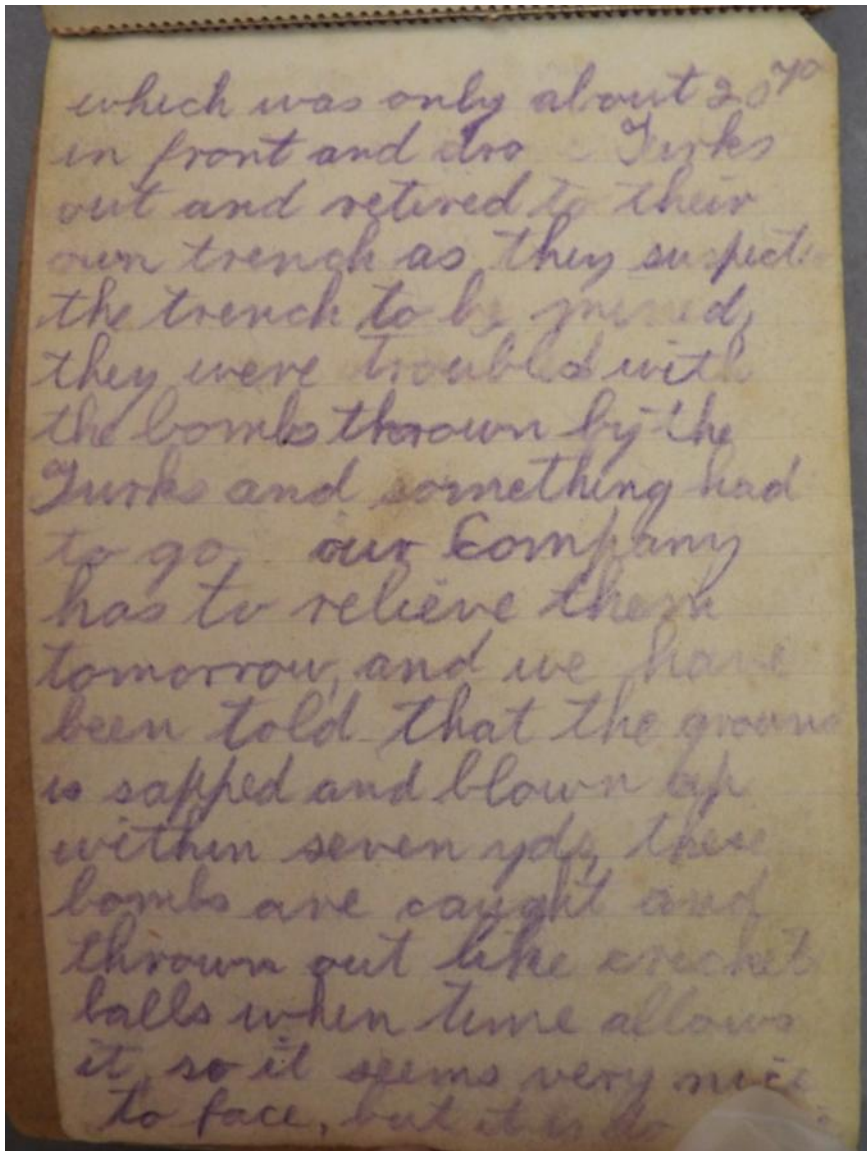 which was only about 20 yd
in front and dro Turks
out and retired to their
own trench as they suspect
the trench to be mined,
they were troubled with
the bombs thrown by the
Turks and something had
to go, our Company
has to relieve them
tomorrow, and we have
been told that the ground
is sapped and blown up
within seven yds, these
bombs are caught and
thrown out like cricket
balls when time allows
it, so it seems very nice
to face, but it is